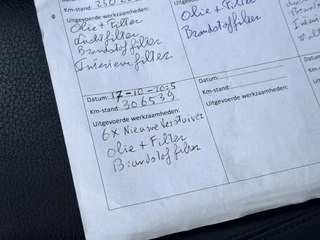 Km-stand:
Uitgevoerde werkzaamheden:
Olie + Filter
Luchtfilter
Brandstoffilter
Interieurfilter
Uitgevoerde werkzaamheden:
Olie + Filter
Brandstoffilter
Datum: 17-10-2025
Km-stand: 306539
Uitgevoerde werkzaamheden:
6x Nieuwe Verstuiver
Olie + Filter
Brandstoffilter
Datum:
Km-stand:
Uitgevoerde werkzaamheden: